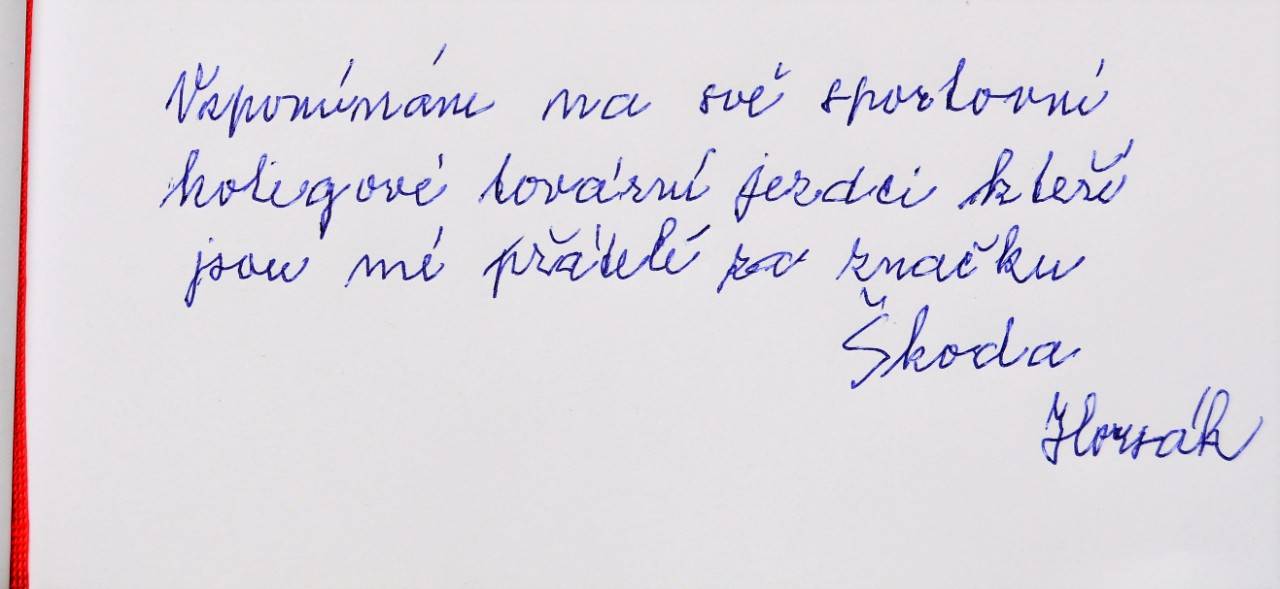 Vzpomínám na své sportovní
kolegové tovární jezdci kteří
jsou mé přátelé za značku
Škoda
Horsák